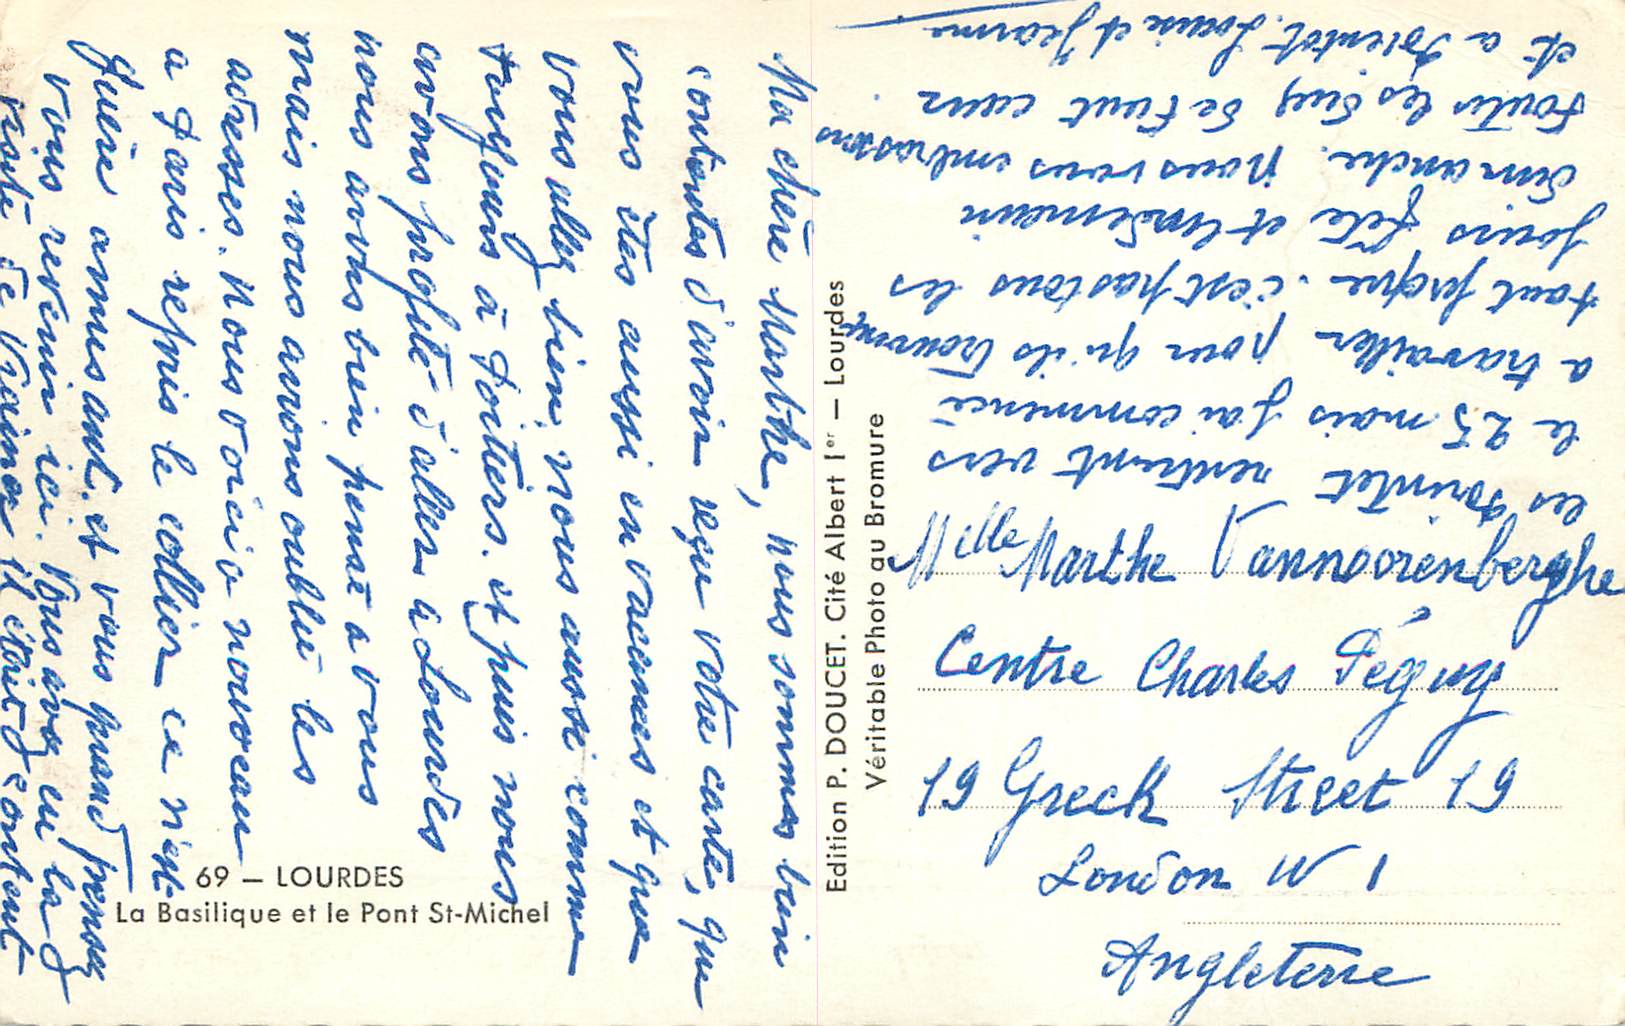 Ma chère Marthe, nous sommes bien
contentes d'avoir reçu votre carte, que
vous êtes aussi en vacances et que
vous allez bien, nous aussi comme
toujours à Poitiers. et puis nous
avons profité d'aller a Lourdes
nous avons bien pensé a vous
mais nous avons oublié les
adresses. Nous voici a nouveau
a Paris repris le collier ce n'est
guère amusant. et vous quand pensez
vous revenir ici. Vous avez eu la
visite de il était content
les rentrent vers
le 25 mais j'ai commencé
a travailler pour qu'ils trouvent
tout propre. c'est pas tous les
jours fête et lendemain
dimanche. Nous vous embrassons
toutes les deux de tout cœur
et a bientôt. Louise et Jeanne
69 – LOURDES
La Basilique et le Pont St-Michel
Edition P. DOUCET. Cité Albert Ier – Lourdes
Véritable Photo au Bromure
Melle Marthe Vannoorenberghe
Centre Charles Péguy
19 Greek Street 19
London W 1
Angleterre